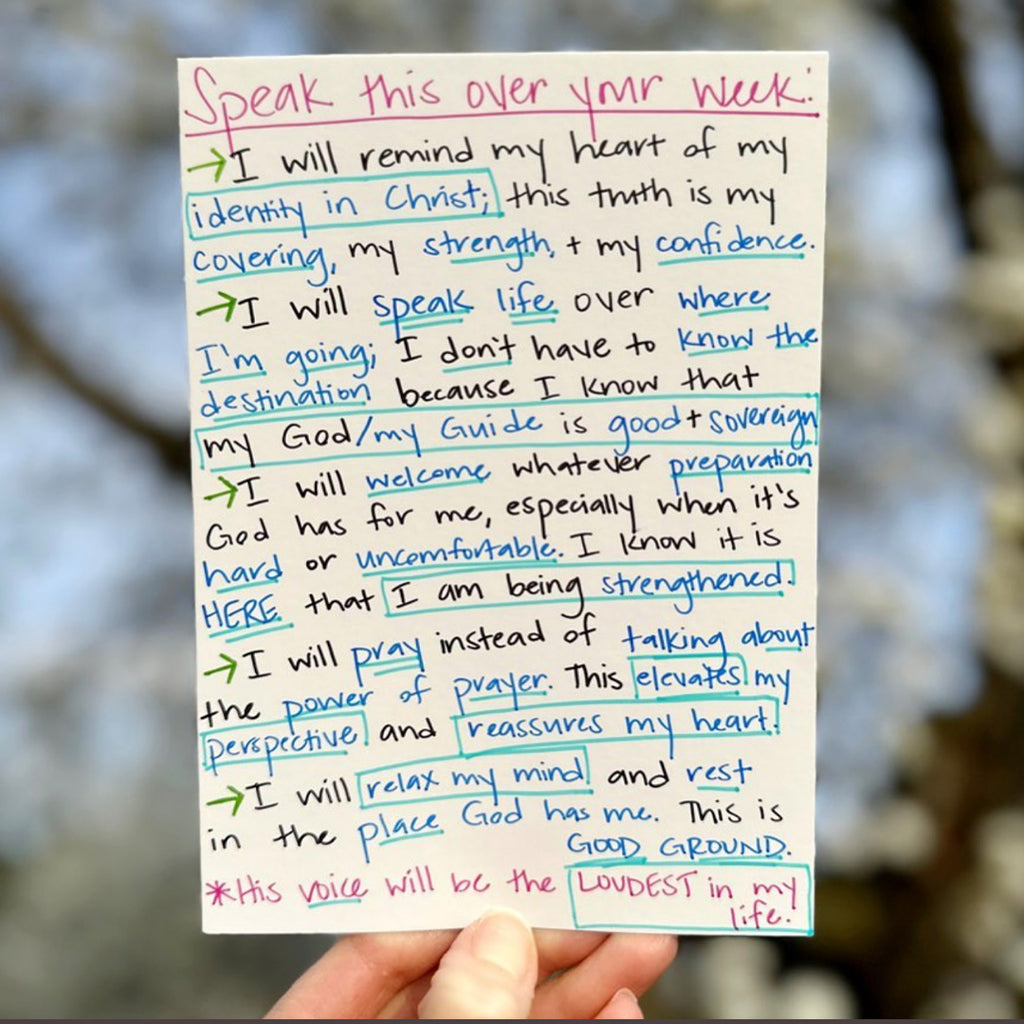 Speak this over your week:
→I will remind my heart of my
identity in Christ; this truth is my
covering, my strength, + my confidence.
→I will speak life over where
I'm going; I don't have to know the
destination because I know that
my God/my Guide is good + sovereign
→I will welcome whatever preparation
God has for me, especially when it's
hard or uncomfortable. I know it is
HERE that I am being strengthened.
→I will pray instead of talking about
the power of prayer. This elevates my
perspective and reassures my heart.
→I will relax my mind and rest
in the place God has me. This is
GOOD GROUND.
*His voice will be the LOUDEST in my
life.